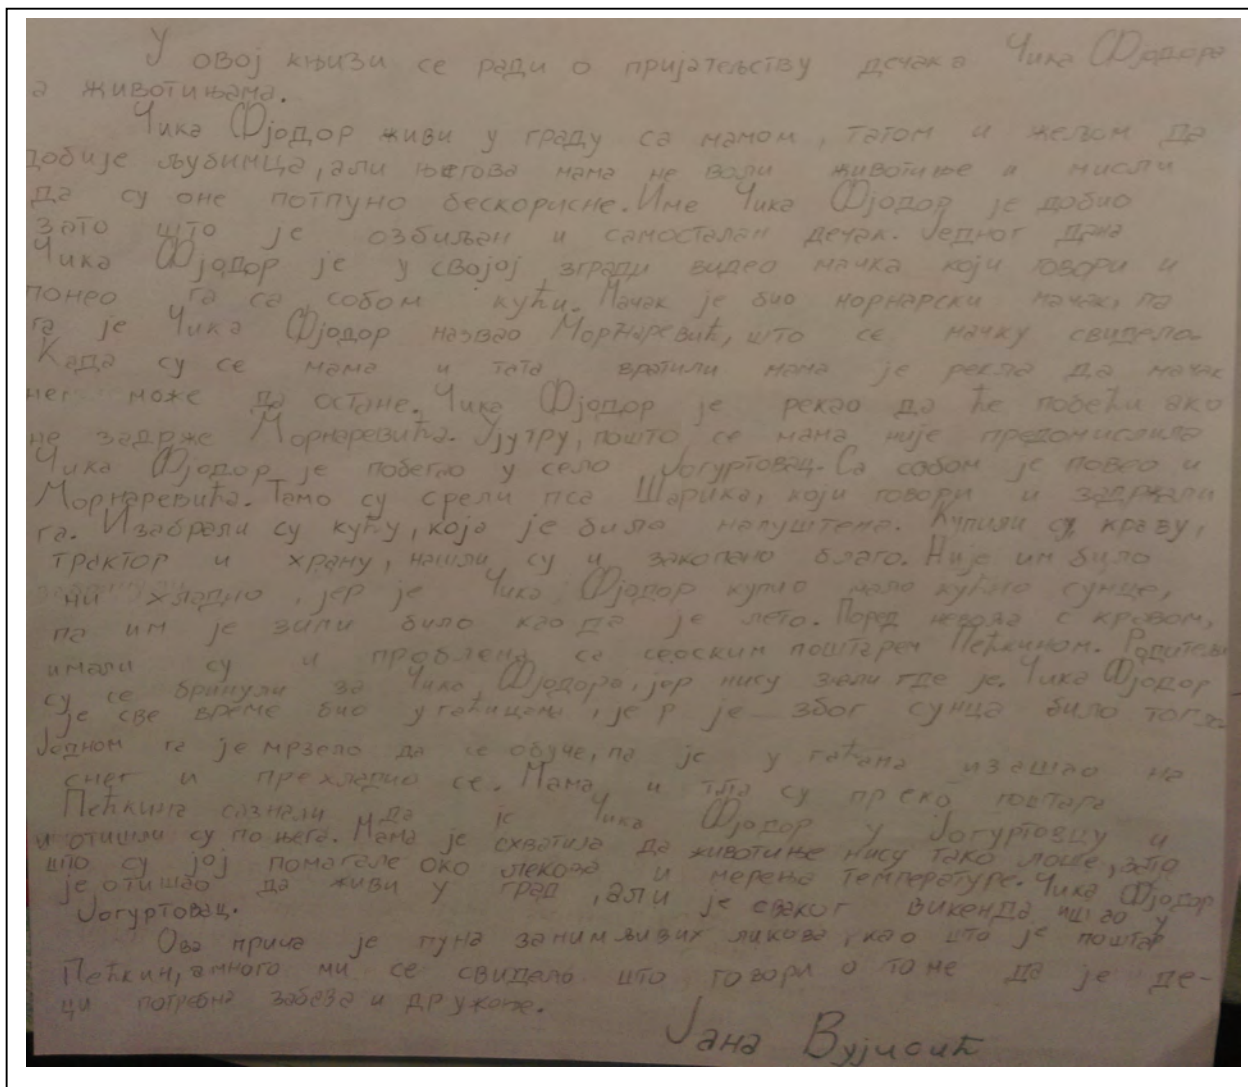 У овој књизи се ради о пријатељству дечака Чика Фјодора
а животињама.
Чика Фјодор живи у граду са мамом, татом и жељом да
добије љубимца, али његова мама не воли животиње и мисли
да су оне потпуно бескорисне. Име Чика Фјодор је добио
зато што је озбиљан и самосталан дечак. Једног дана
Чика Фјодор је у својој згради видео мачка који говори и
понео га са собом кући. Мачак је био морнарски мачак, па
га је Чика Фјодор назвао Морнаревић, што се мачку свидело.
Када су се мама и тата вратили мама је рекла да мачак
не може да остане. Чика Фјодор је рекао да ће побећи ако
не задрже Морнаревића. Ујутру, пошто се мама није предомислила
Чика Фјодор је побегао у село Јогуртовац. Са собом је повео и
Морнаревића. Тамо су срели пса Шарика, који говори и задржали
га. Изабрали су кућу, која је била напуштена. Купили су краву,
трактор и храну, нашли су и закопано благо. Није им било
ни хладно, јер је Чика Фјодор купио мало кућно сунце,
па им је зими било као да је лето. Поред невоља с кравом,
имали су и проблема са сеоским поштарем Пећкином. Родитељи
су се бринули за Чика Фјодора, јер нису знали где је. Чика Фјодор
је све време био у гаћицама, јер је због сунца било топло.
Једном га је мрзело да се обуче, па је у гаћама изашао на
снег и прехладио се. Мама и тата су преко поштара
Пећкина сазнали да је Чика Фјодор у Јогуртовцу и
и отишли су по њега. Мама је схватила да животиње нису тако лоше, зато
што су јој помагале око лекова и мерења температуре. Чика Фјодор
је отишао да живи у град, али је сваког викенда ишао у
Јогуртовац.
Ова прича је пуна занимљивих ликова, као што је поштар
Пећкин, а много ми се свидело што говори о томе да је де-
ци потребна забава и дружење.
Јана Вујисић